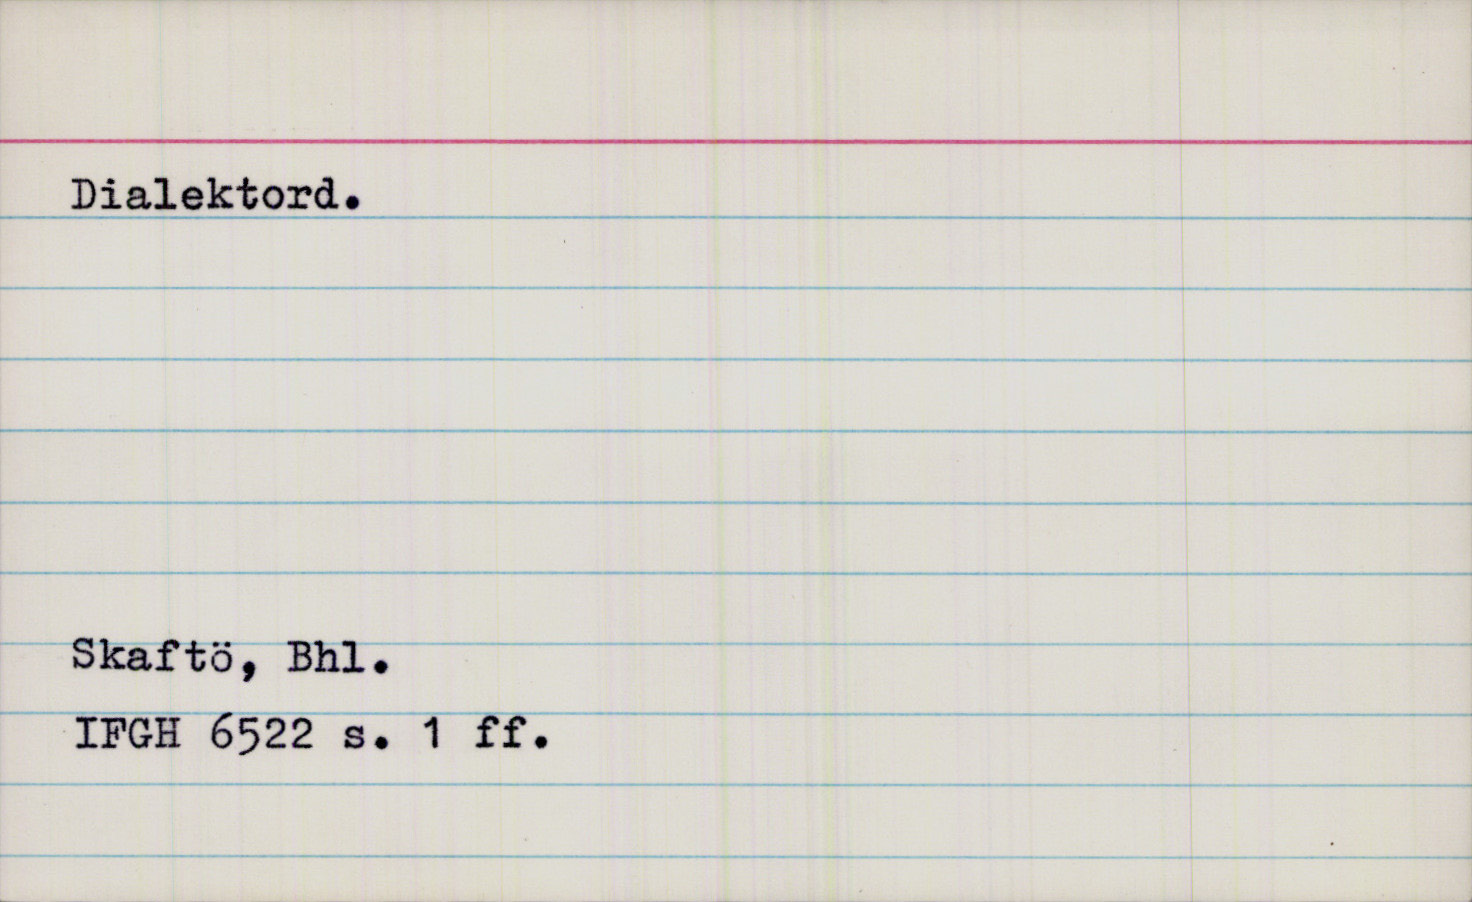 Dialektord.
Skaftö, Bhl.
IFGH 6522 s. 1 ff.